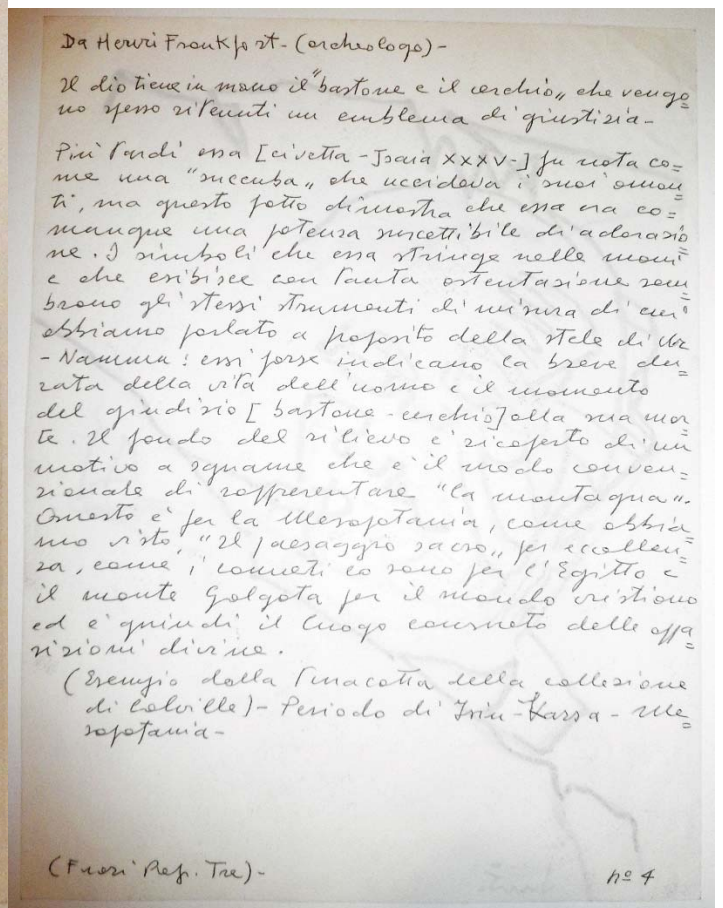 Da Henri Frankfort - (archeologo) -
Il dio tiene in mano il "bastone e il cerchio„ che vengo=
no spesso ritenuti un emblema di giustizia -
Più tardi essa [civetta - Isaia XXXV-] fu nota co=
me una "succuba„ che uccideva i suoi aman=
ti, ma questo fatto dimostra che essa era co=
munque una potenza suscettibile di adorazio=
ne. I simboli che essa stringe nelle mani
e che esibisce con tanta ostentazione sem
brano gli stessi strumenti di misura di cui
abbiamo parlato a proposito della stele di Ur
- Nammu: essi forse indicano la breve du=
rata della vita dell'uomo e il momento
del giudizio [bastone - cerchio] alla sua mor=
te. Il fondo del rilievo è ricoperto di un
motivo a squame che è il modo conven=
zionale di rappresentare "la montagna".
Questo è per la Mesopotamia, come abbia=
mo visto, "Il paesaggio sacro„ per eccellen=
za, come i canneti lo sono per l'Egitto e
il monte Golgota per il mondo cristiano
ed è quindi il luogo consueto delle appa=
rizioni divine.
(Esempio dalla terracotta della collezione
di Colville) - Periodo di Isin - Larsa - Me=
sopotamia -
(Fuori Rep. Tre) -
nº 4